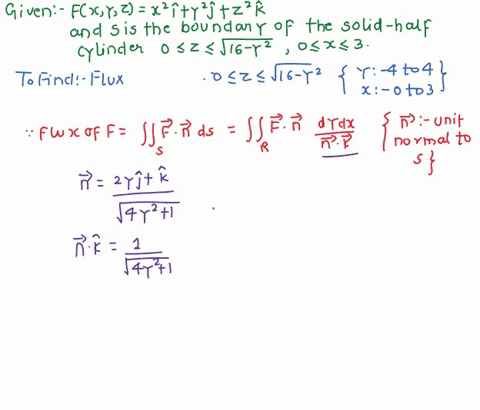 Given:- F(x,y,z) = x²î+y²ĵ+z²k̂
and s is the boundary of the solid-half
cylinder 0≤z≤√16-y² , 0≤x≤3.
To Find:- Flux . 0≤z≤√16-y² { y:-4 to 4 } x:-0 to 3
∵ Flux of F = ∬_S F⃗·n⃗ ds = ∬_R F⃗·n⃗ dydx/n⃗·k⃗ { n⃗:- unit normal to s }
n⃗ = 2yĵ+k̂ / √4y²+1
n⃗·k̂ = 1 / √4y²+1